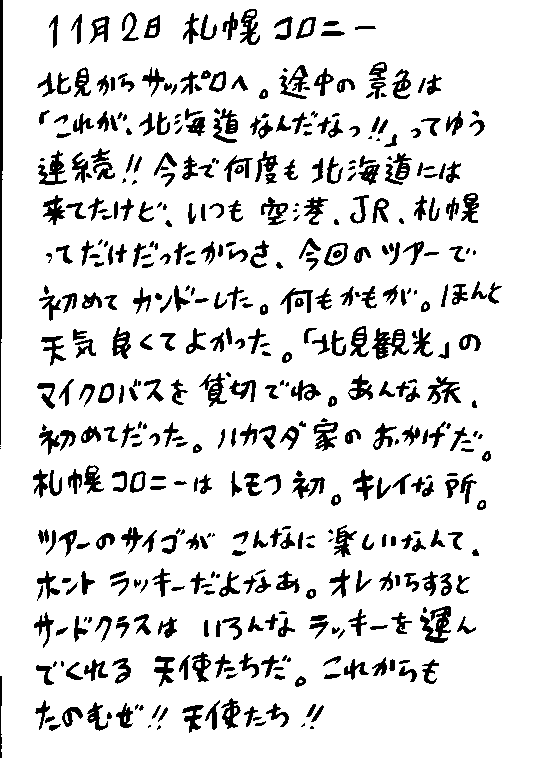 11月2日 札幌コロニー
北見からサッポロへ。途中の景色は
「これが、北海道なんだなっ!!」ってゆう
連続!! 今まで何度も北海道には
来てたけど、いつも空港、JR、札幌
ってだけだったからさ、今回のツアーで
初めてカンドーした。何もかもが。ほんと
天気良くてよかった。「北見観光」の
マイクロバスを貸切でね。あんな旅、
初めてだった。ハカマダ家のおかげだ。
札幌コロニーはトモフ初。キレイな所。
ツアーのサイゴがこんなに楽しいなんて、
ホントラッキーだよなあ。オレからすると
サードクラスはいろんなラッキーを運ん
でくれる天使たちだ。これからも
たのむぜ!! 天使たち!!